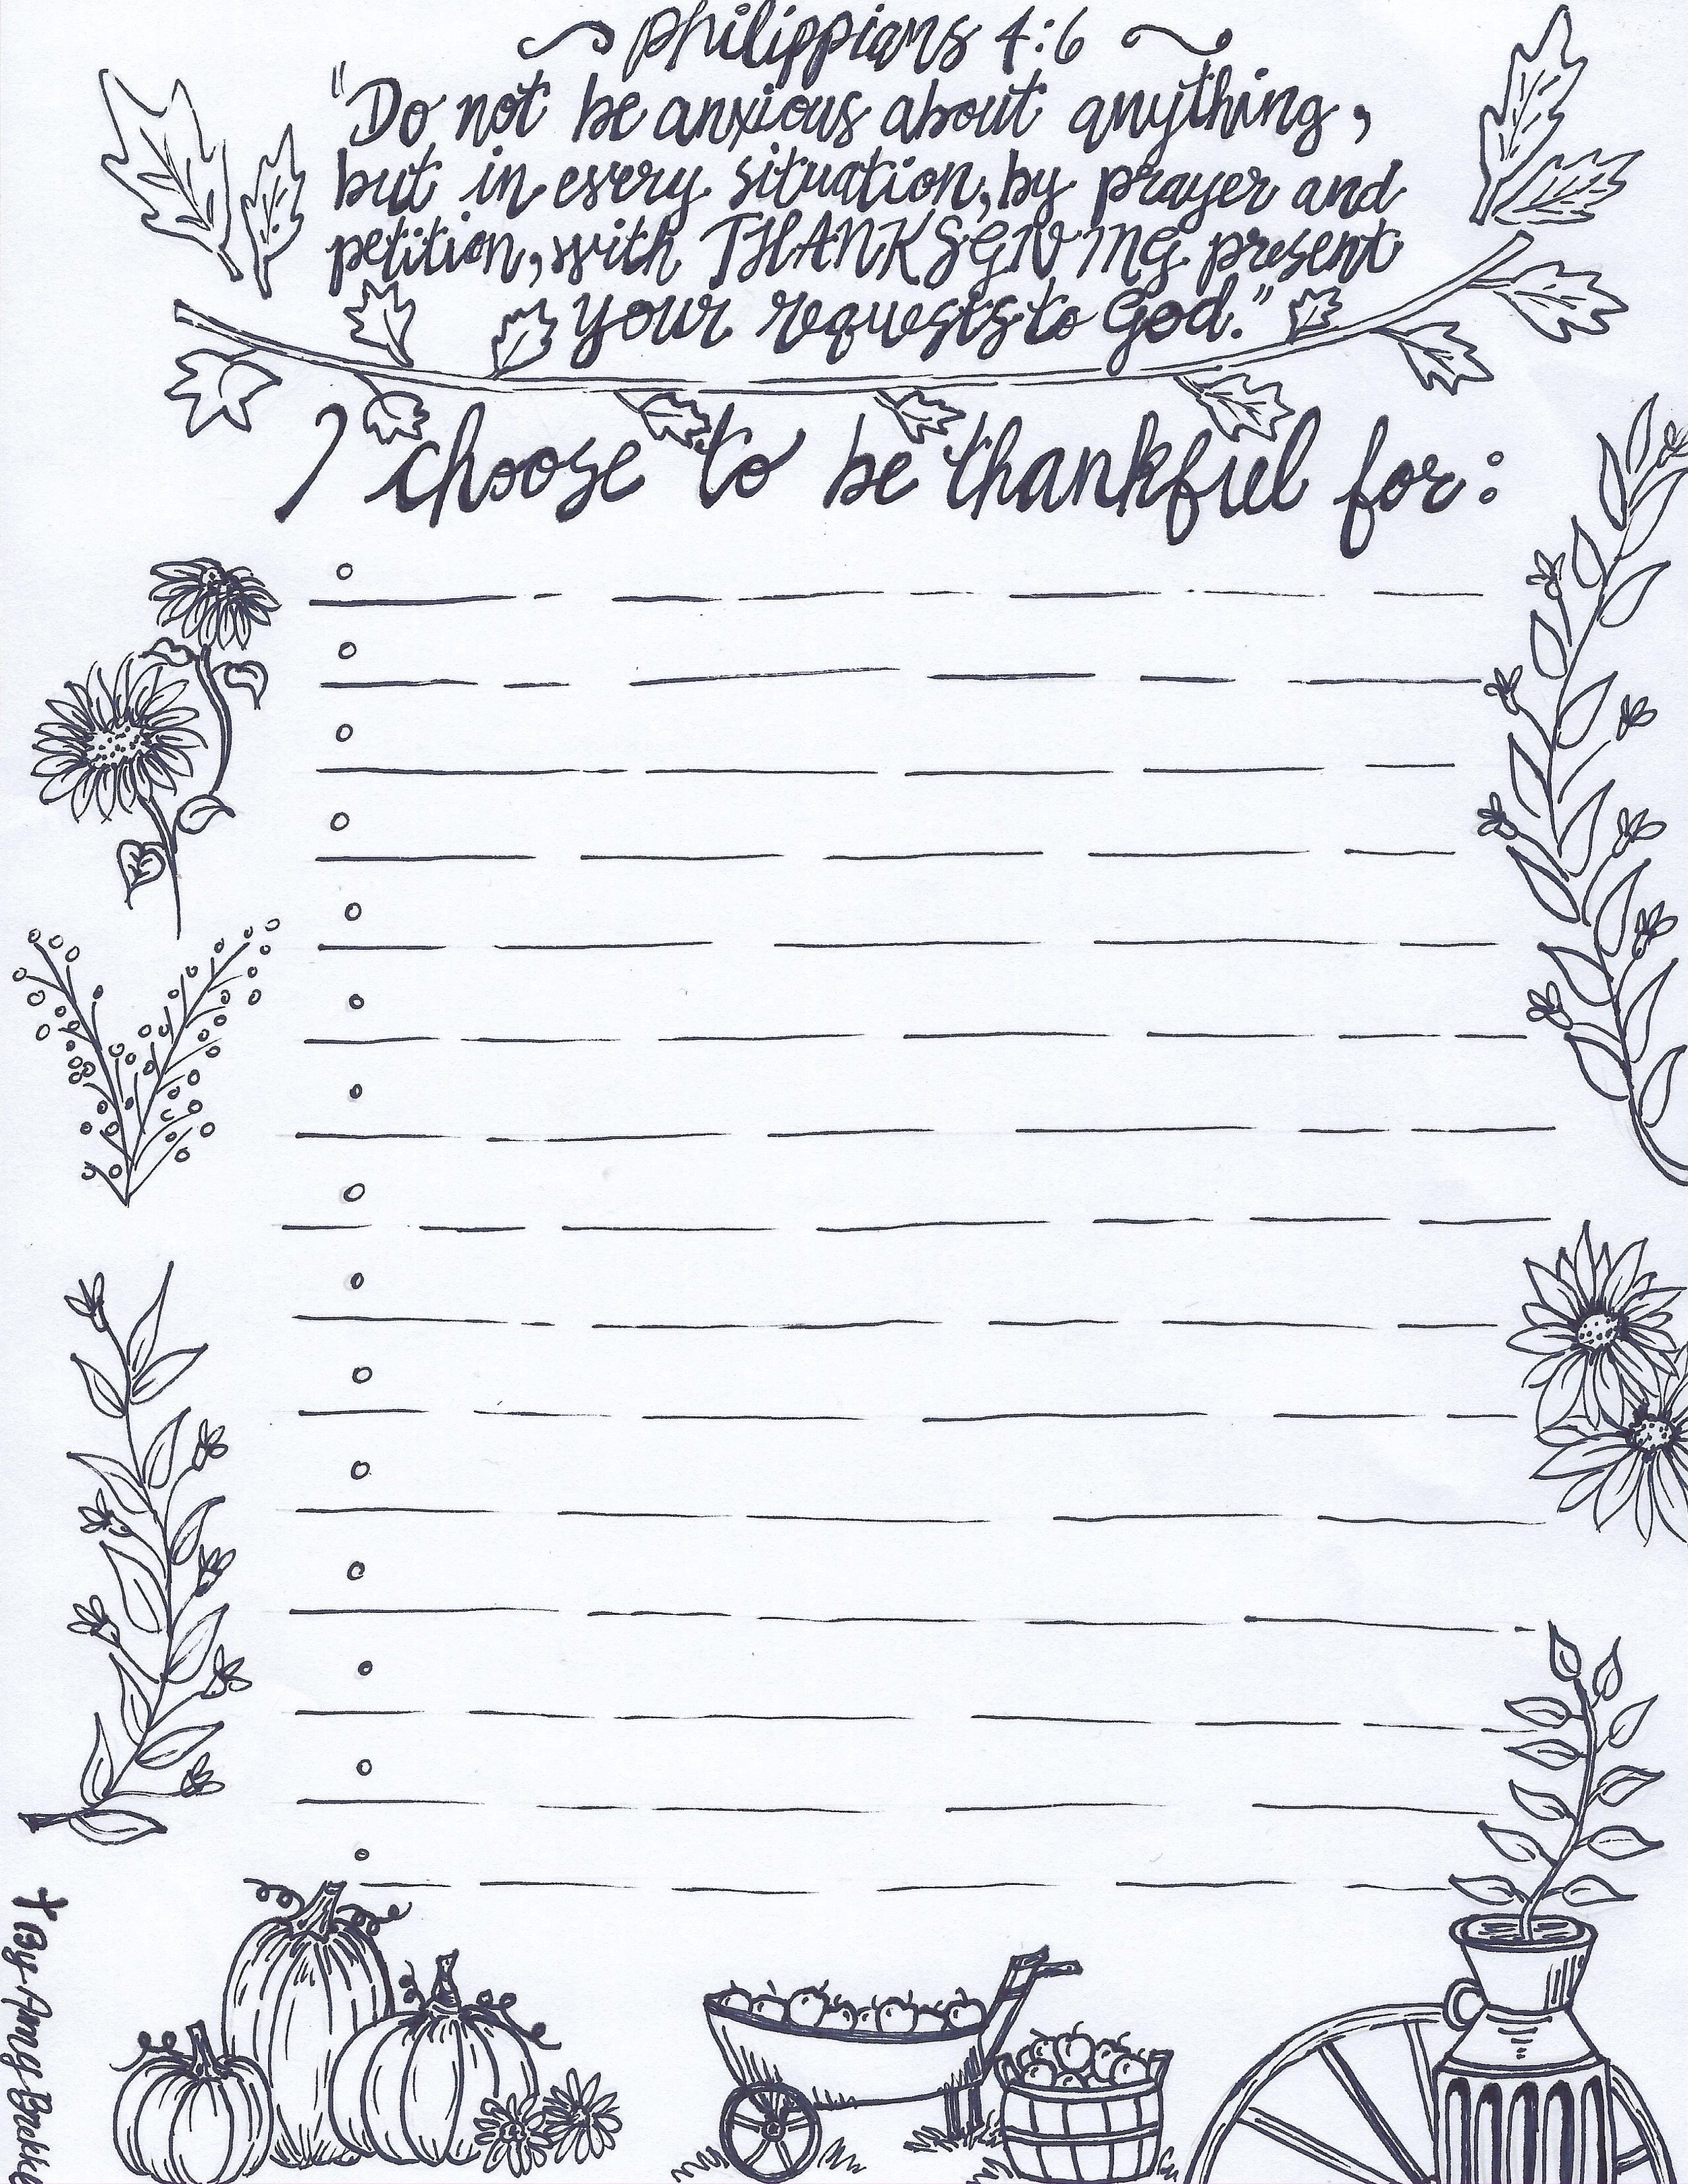 Philippians 4:6
"Do not be anxious about anything,
but in every situation, by prayer and
petition, with THANKSGIVING present
your requests to God."
I choose to be thankful for:
By Amy